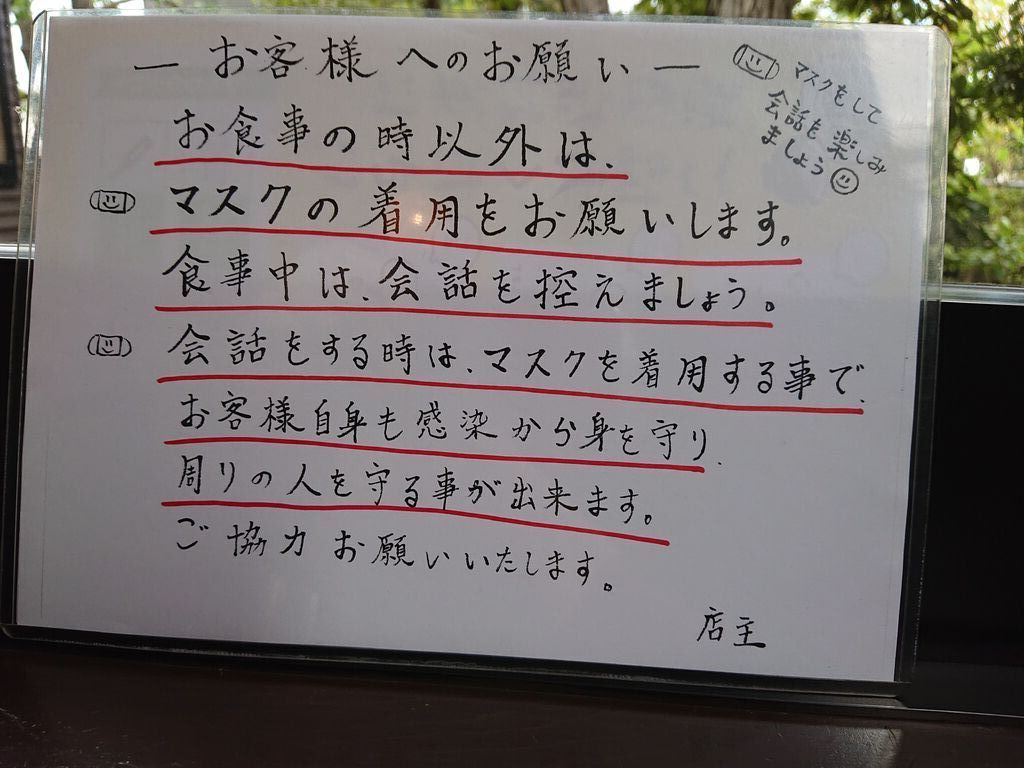 ― お客様へのお願い ―
マスクをして
会話を楽しみ
ましょう
お食事の時以外は、
マスクの着用をお願いします。
食事中は、会話を控えましょう。
会話をする時は、マスクを着用する事で、
お客様自身も感染から身を守り、
周りの人を守る事が出来ます。
ご協力お願いいたします。
店主